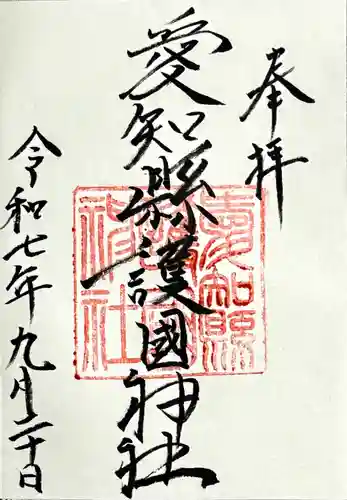 奉拝
愛知縣護國神社
愛知縣護國神社
令和七年九月二十日